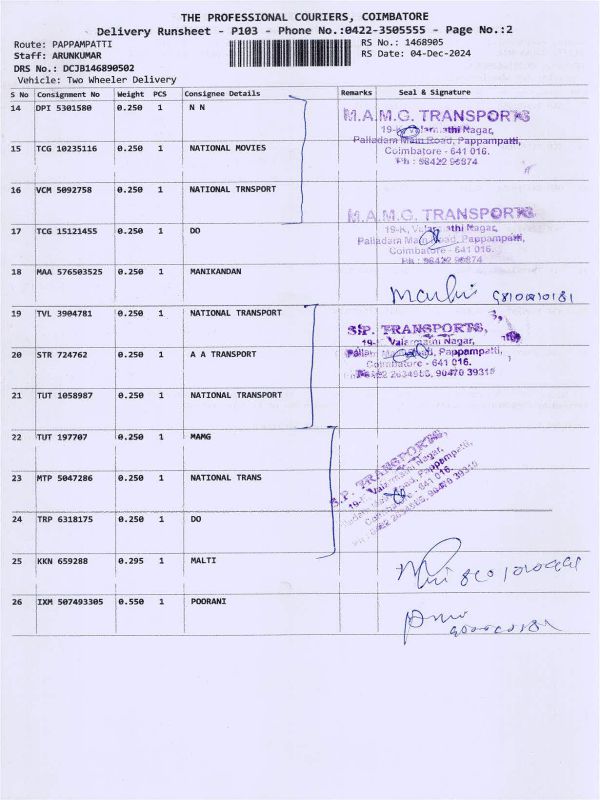 THE PROFESSIONAL COURIERS, COIMBATORE
Delivery Runsheet - P103 - Phone No.:0422-3505555 - Page No.:2
Route: PAPPAMPATTI RS No.: 1468905
Staff: ARUNKUMAR RS Date: 04-Dec-2024
DRS No.: DCJB146890502
Vehicle: Two Wheeler Delivery
S No Consignment No Weight PCS Consignee Details Remarks Seal & Signature
14 DPI 5301580 0.250 1 N N
M.A.M.G. TRANSPORTS
19-K, Valarmathi Nagar,
Palladam Main Road, Pappampatti,
Coimbatore - 641 016.
Ph : 98422 96874
15 TCG 10235116 0.250 1 NATIONAL MOVIES
16 VCM 5092758 0.250 1 NATIONAL TRNSPORT
M.A.M.G. TRANSPORTS
19-K, Valarmathi Nagar,
Palladam Main Road, Pappampatti,
Coimbatore - 641 016.
Ph : 98422 96874
17 TCG 15121455 0.250 1 DO
18 MAA 576503525 0.250 1 MANIKANDAN
19 TVL 3904781 0.250 1 NATIONAL TRANSPORT
S.P. TRANSPORTS,
Valarmathi Nagar,
Road, Pappampatti,
Coimbatore - 641 016.
2634955, 90470 39315
20 STR 724762 0.250 1 A A TRANSPORT
21 TUT 1058987 0.250 1 NATIONAL TRANSPORT
22 TUT 197707 0.250 1 MAMG
S.P. TRANSPORTS,
Valarmathi Nagar,
Road, Pappampatti,
Coimbatore - 641 016.
2634955, 90470 39315
23 MTP 5047286 0.250 1 NATIONAL TRANS
24 TRP 6318175 0.250 1 DO
25 KKN 659288 0.295 1 MALTI
26 IXM 507493305 0.550 1 POORANI